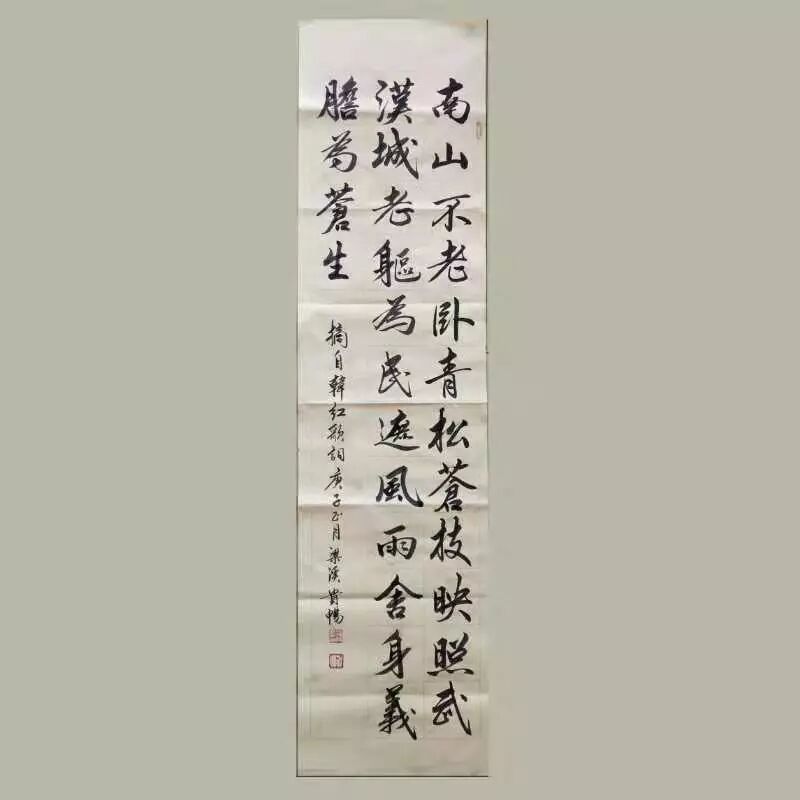 南山不老卧青松蒼枝映照武
漢城老軀為民遮風雨舍身義
膽為蒼生
摘自韓紅歌詞庚子正月梁溪貴暢